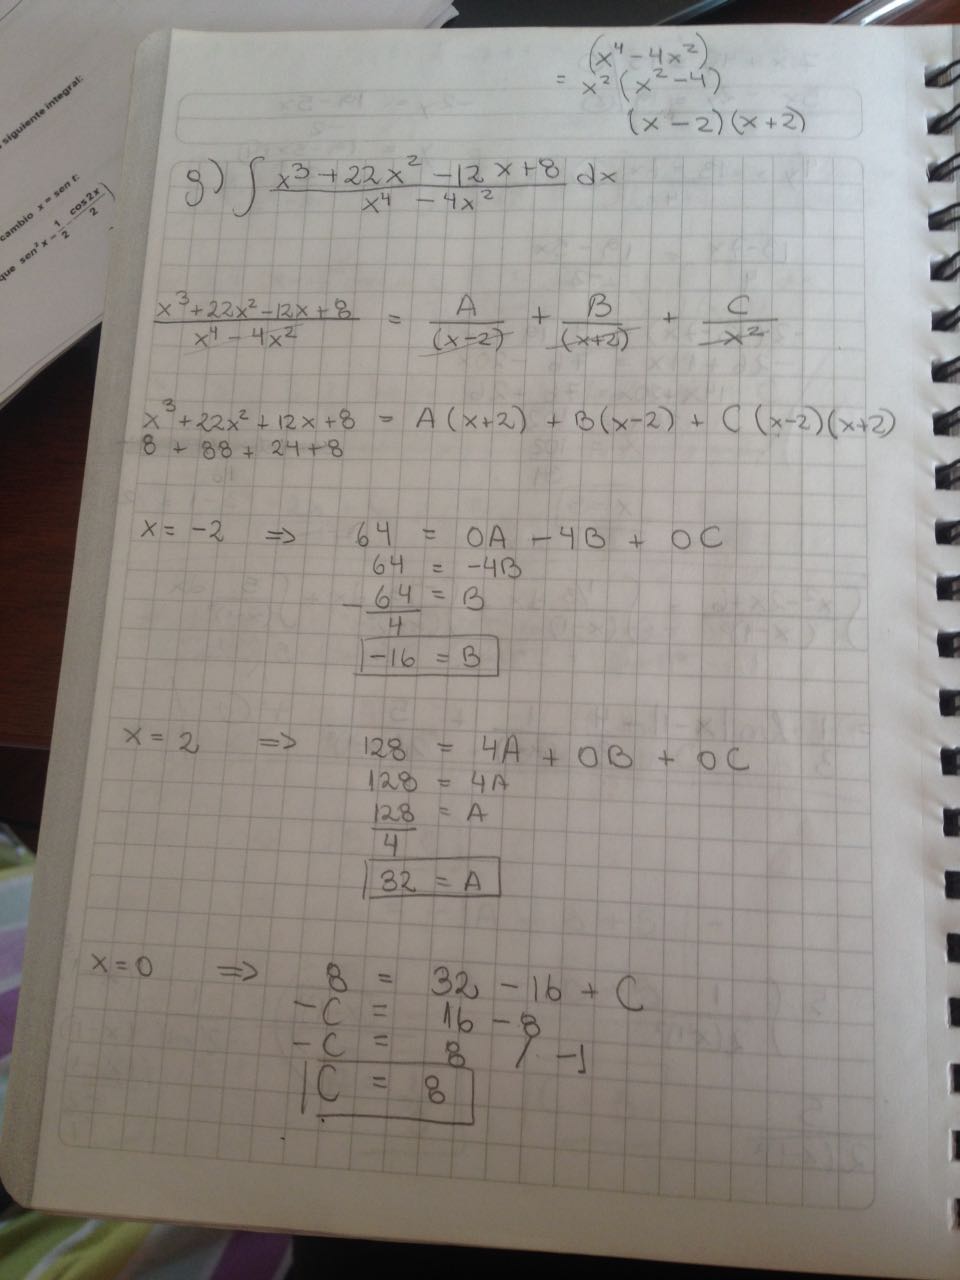 siguiente integral:
cambio x = sen t:
que sen² x - 1/2 - cos2x/2)
(x⁴ - 4x²)
= x² (x² - 4)
(x - 2)(x + 2)
g) ∫ x³ + 22x² - 12x + 8 / x⁴ - 4x² dx
x³ + 22x² - 12x + 8 / x⁴ - 4x² = A / (x-2) + B / (x+2) + C / x²
x³ + 22x² + 12x + 8 = A (x+2) + B (x-2) + C (x-2)(x+2)
8 + 88 + 24 + 8
x = -2 ⇒ 64 = 0A - 4B + 0C
64 = -4B
- 64/4 = B
-16 = B
x = 2 ⇒ 128 = 4A + 0B + 0C
128 = 4A
128/4 = A
32 = A
x = 0 ⇒ 8 = 32 - 16 + C
-C = 16 - 8
-C = 8 / -1
C = 8